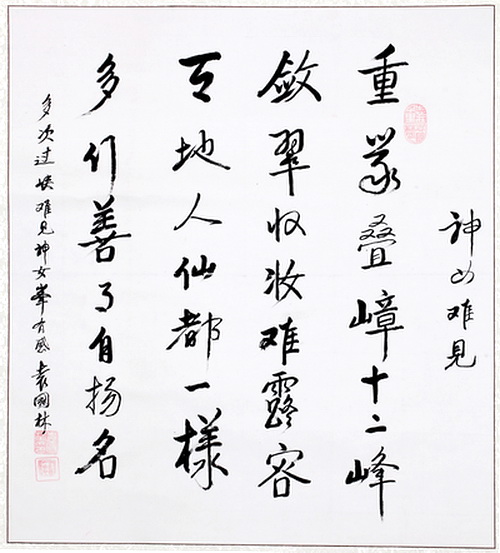 神女难见
重峦叠嶂十二峰
敛翠收妆难露容
地人仙都一樣
多行善了自扬名
多次过峡难见神女峯有感 袁國林